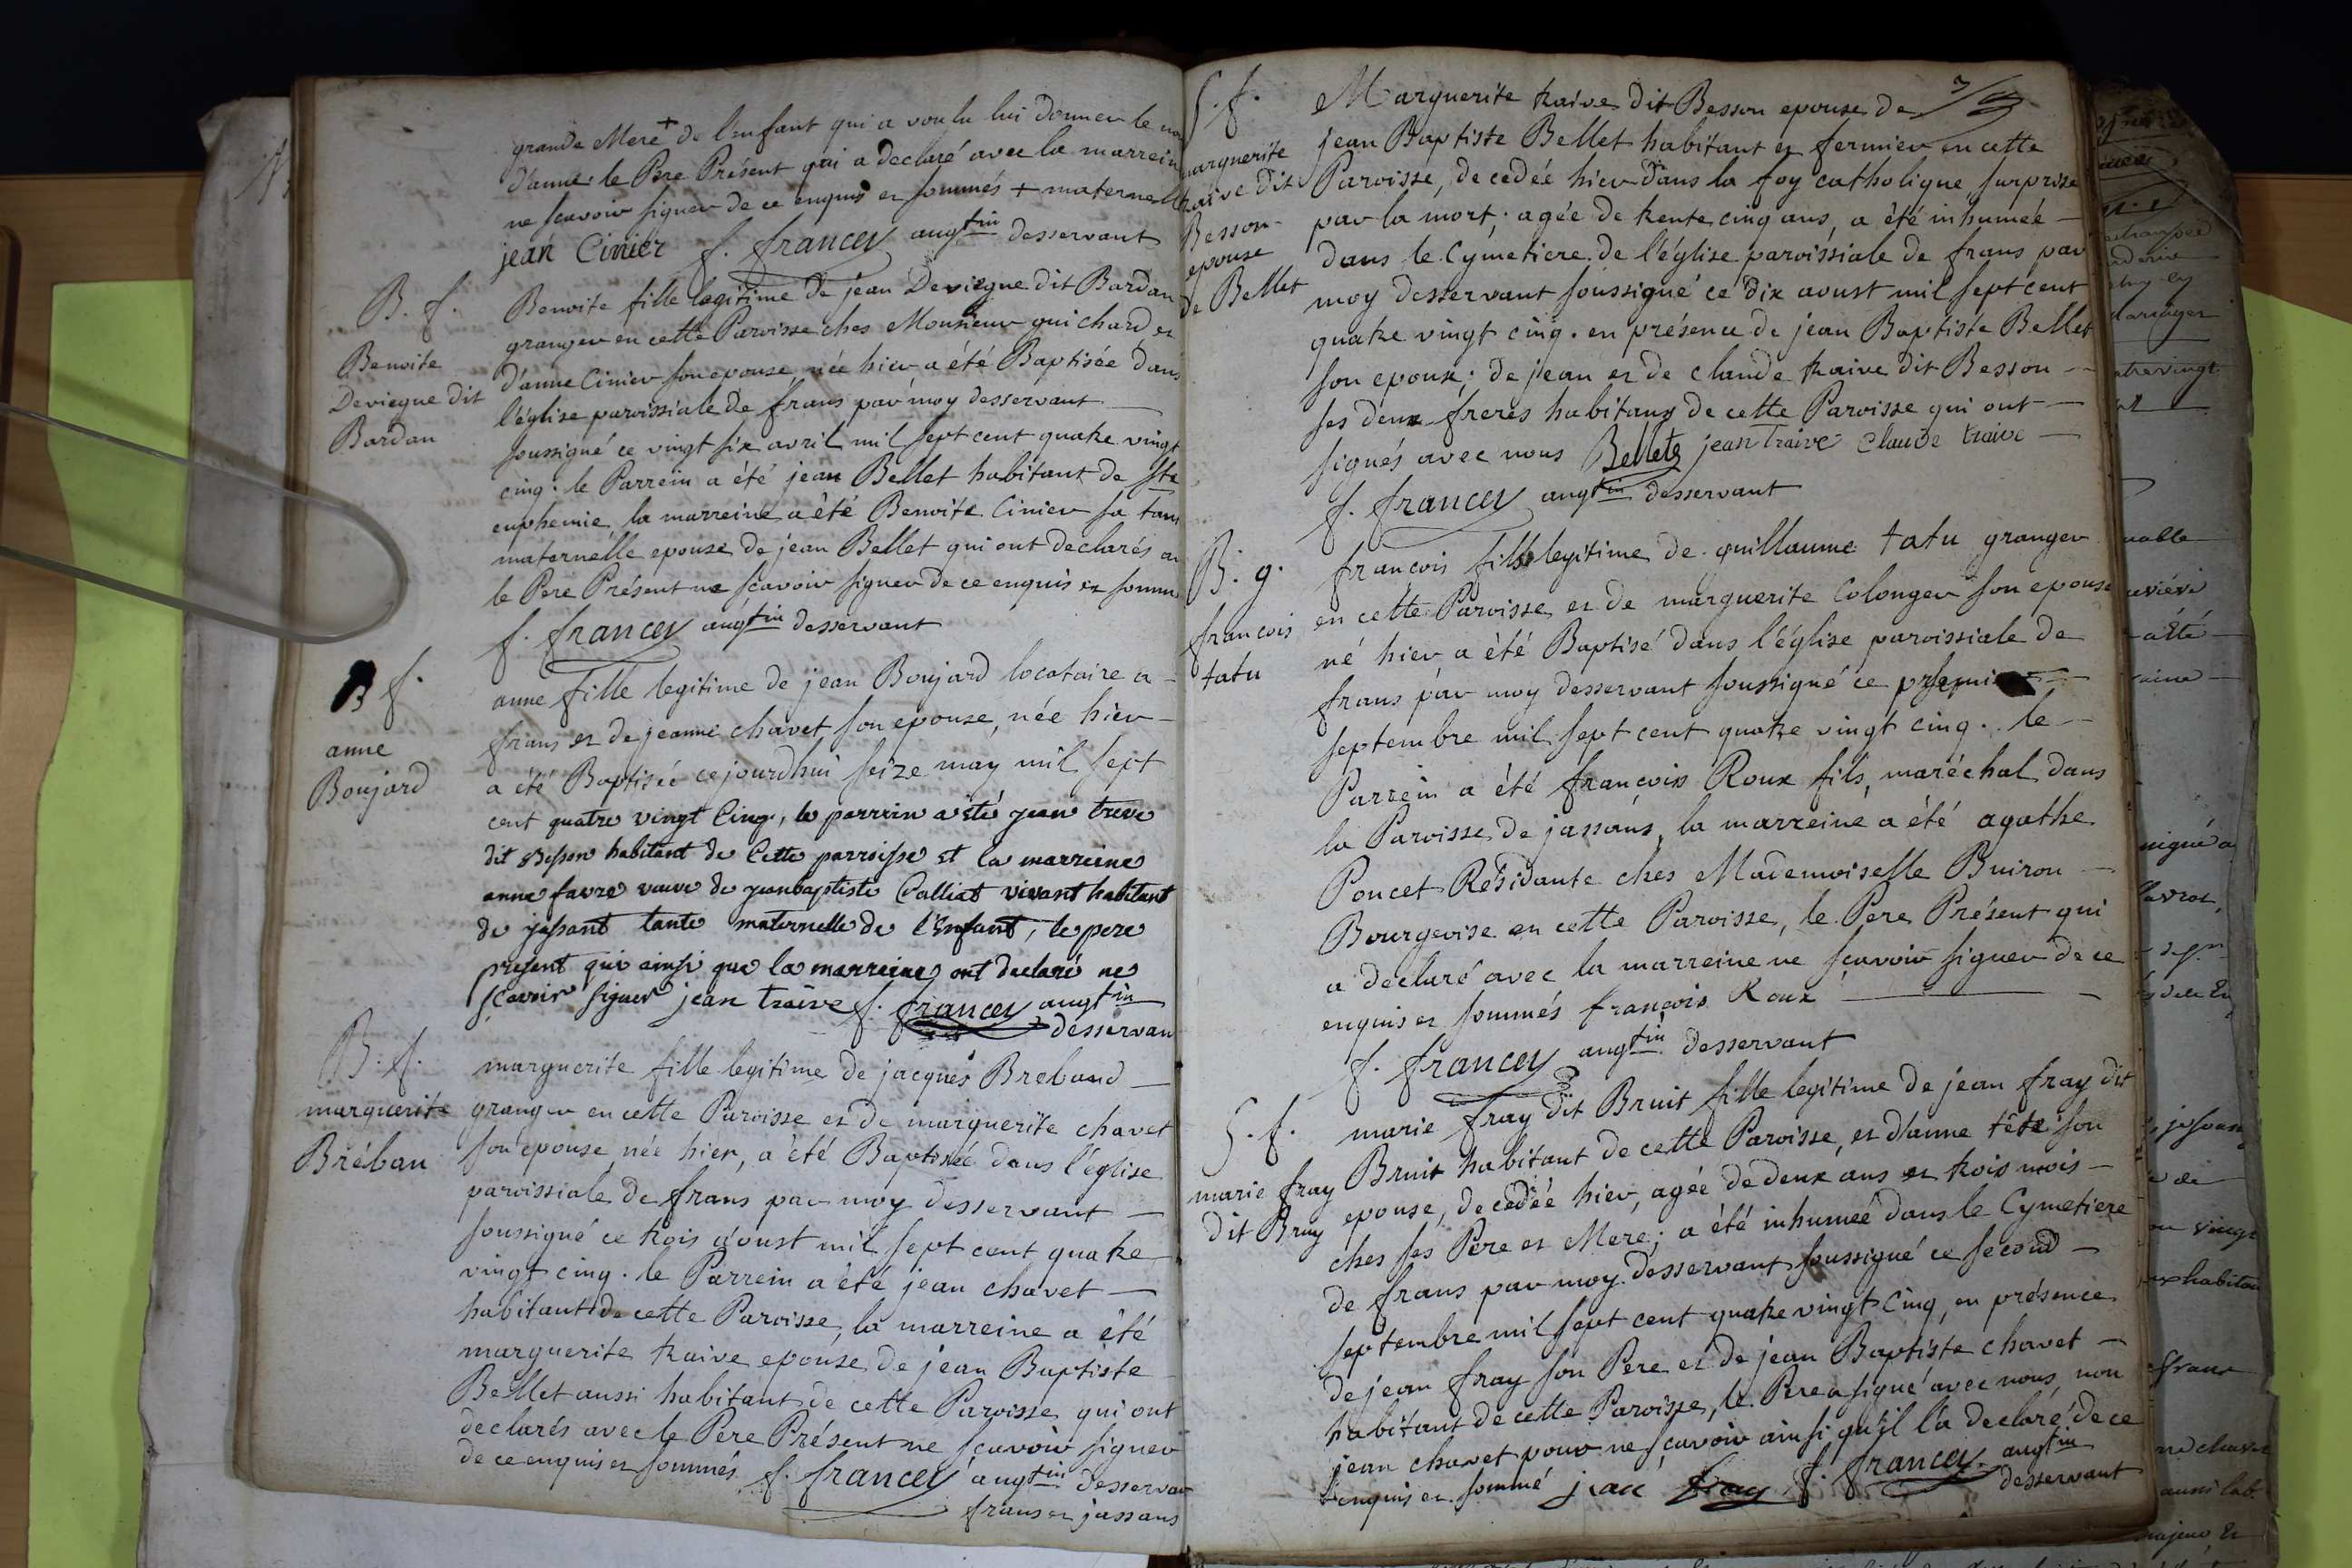 grande Mere + de l'enfant qui a voulu lui donner le no
d'anne. le Pere Présent qui a declaré avec la marrein
ne sçavoir signer de ce enquis et sommés + maternelle
jean Cinier f. francey augtin desservant
B. f.
Benoite
Deviegne dit
Bardan
Benoite fille legitime de jean Deviegne dit Bardan
granger en cette Paroisse ches Monsieur guichard et
d'anne Cinier son epouse, née hier a été Baptisée dans
l'église paroissiale de frans par moy desservant
soussigné ce vingt six avril mil sept cent quatre vingt
cinq. le Parrein a été jean Bellet habitant de Ste
euphemie, la marreine a été Benoite Cinier sa tant
maternelle epouse de jean Bellet qui ont declarés av
le Pere Présent ne sçavoir signer de ce enquis et somm
f. francey augtin desservant
B f.
anne
Boujard
anne fille legitime de jean Boujard locataire a
frans et de jeanne chavet son epouse, née hier
a été Baptisée cejourdhui seize may mil sept
cent quatre vingt Cinq, le parrein a été jean treve
dit Besson habitant de Cette parroisse et la marreine
anne favre veuve de jeanbaptiste Calliat vivant habitant
de jassant tante maternelle de l'Enfant, le pere
present qui ainsi que la marreine ont declaré ne
sçavoir signer jean traive f. francey augtin
desservan
B. f.
marguerite
Bréban
marguerite fille legitime de jacques Breband
granger en cette Paroisse et de marguerite chavet
son epouse née hier, a été Baptisée dans l'église
paroissiale de frans par moy desservant
soussigné ce trois aoust mil sept cent quatre
vingt cinq. le Parrein a été jean chavet
habitant de cette Paroisse, la marreine a été
marguerite traive epouse de jean Baptiste
Bellet aussi habitant de cette Paroisse qui ont
declarés avec le Pere Présent ne sçavoir signer
de ce enquis et sommés. f. francey augtin desservan
frans et jassans
S. f.
marguerite
traive dit
Besson
epouse
de Bellet
Marguerite traive dit Besson epouse de
jean Baptiste Bellet habitant et fermier en cette
Paroisse, decedée hier dans la foy catholique, surprise
par la mort; agée de trente cinq ans, a été inhumée
dans le Cymetiere de l'église paroissiale de frans par
moy desservant soussigné ce dix aoust mil sept cent
quatre vingt cinq. en présence de jean Baptiste Bellet
son epoux; de jean et de claude traive dit Besson
ses deux freres habitans de cette Paroisse qui ont
signés avec nous Bellet jean Traive Claude traive
f. francey augtin desservant
B. g.
francois
tatu
francois fils legitime de guillaume tatu granger
en cette Paroisse et de marguerite Colonger son epouse
né hier a été Baptisé dans l'église paroissiale de
frans par moy desservant soussigné ce premier
septembre mil sept cent quatre vingt cinq. le
Parrein a été francois Roux fils, maréchal dans
la Paroisse de jassans, la marreine a été agathe
Poncet Résidante ches Mademoiselle Buiron
Bourgeoise en cette Paroisse, le Pere Présent qui
a declaré avec la marreine ne sçavoir signer de ce
enquis et sommés françois Roux
f. francey augtin desservant
S. f.
marie fray
dit Bruy
marie fray dit Bruit fille legitime de jean fray dit
Bruit habitant de cette Paroisse, et d'anne tête son
epouse, decedée hier, agée de deux ans et trois mois
ches ses Pere et Mere; a été inhumée dans le Cymetiere
de frans par moy desservant soussigné ce second
septembre mil sept cent quatre vingt cinq, en présence
de jean fray son Pere et de jean Baptiste chavet
habitant de cette Paroisse, le Pere a signé avec nous, non
jean chavet pour ne sçavoir ainsi qu'il l'a declaré de ce
enquis et sommé jean fray f. francey augtin
desservant